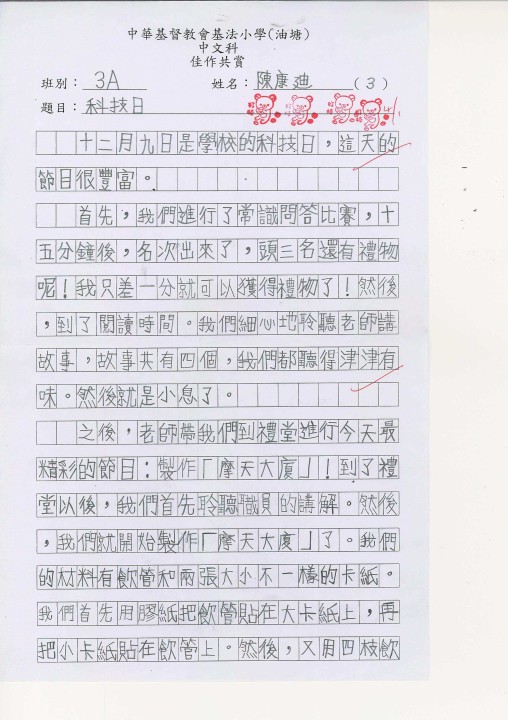 中華基督教會基法小學(油塘)
中文科
佳作共賞
班別： 3A 姓名： 陳康迪 (3)
題目： 科技日
十二月九日是學校的科技日，這天的
節目很豐富。
首先，我們進行了常識問答比賽，十
五分鐘後，名次出來了，頭三名還有禮物
呢！我只差一分就可以獲得禮物了！然後
，到了閱讀時間。我們細心地聆聽老師講
故事，故事共有四個，我們都聽得津津有
味。然後就是小息了。
之後，老師帶我們到禮堂進行今天最
精彩的節目：製作「摩天大廈」！到了禮
堂以後，我們首先聆聽職員的講解。然後
，我們就開始製作「摩天大廈」了。我們
的材料有飲管和兩張大小不一樣的卡紙。
我們首先用膠紙把飲管貼在大卡紙上，再
把小卡紙貼在飲管上。然後，又用四枝飲